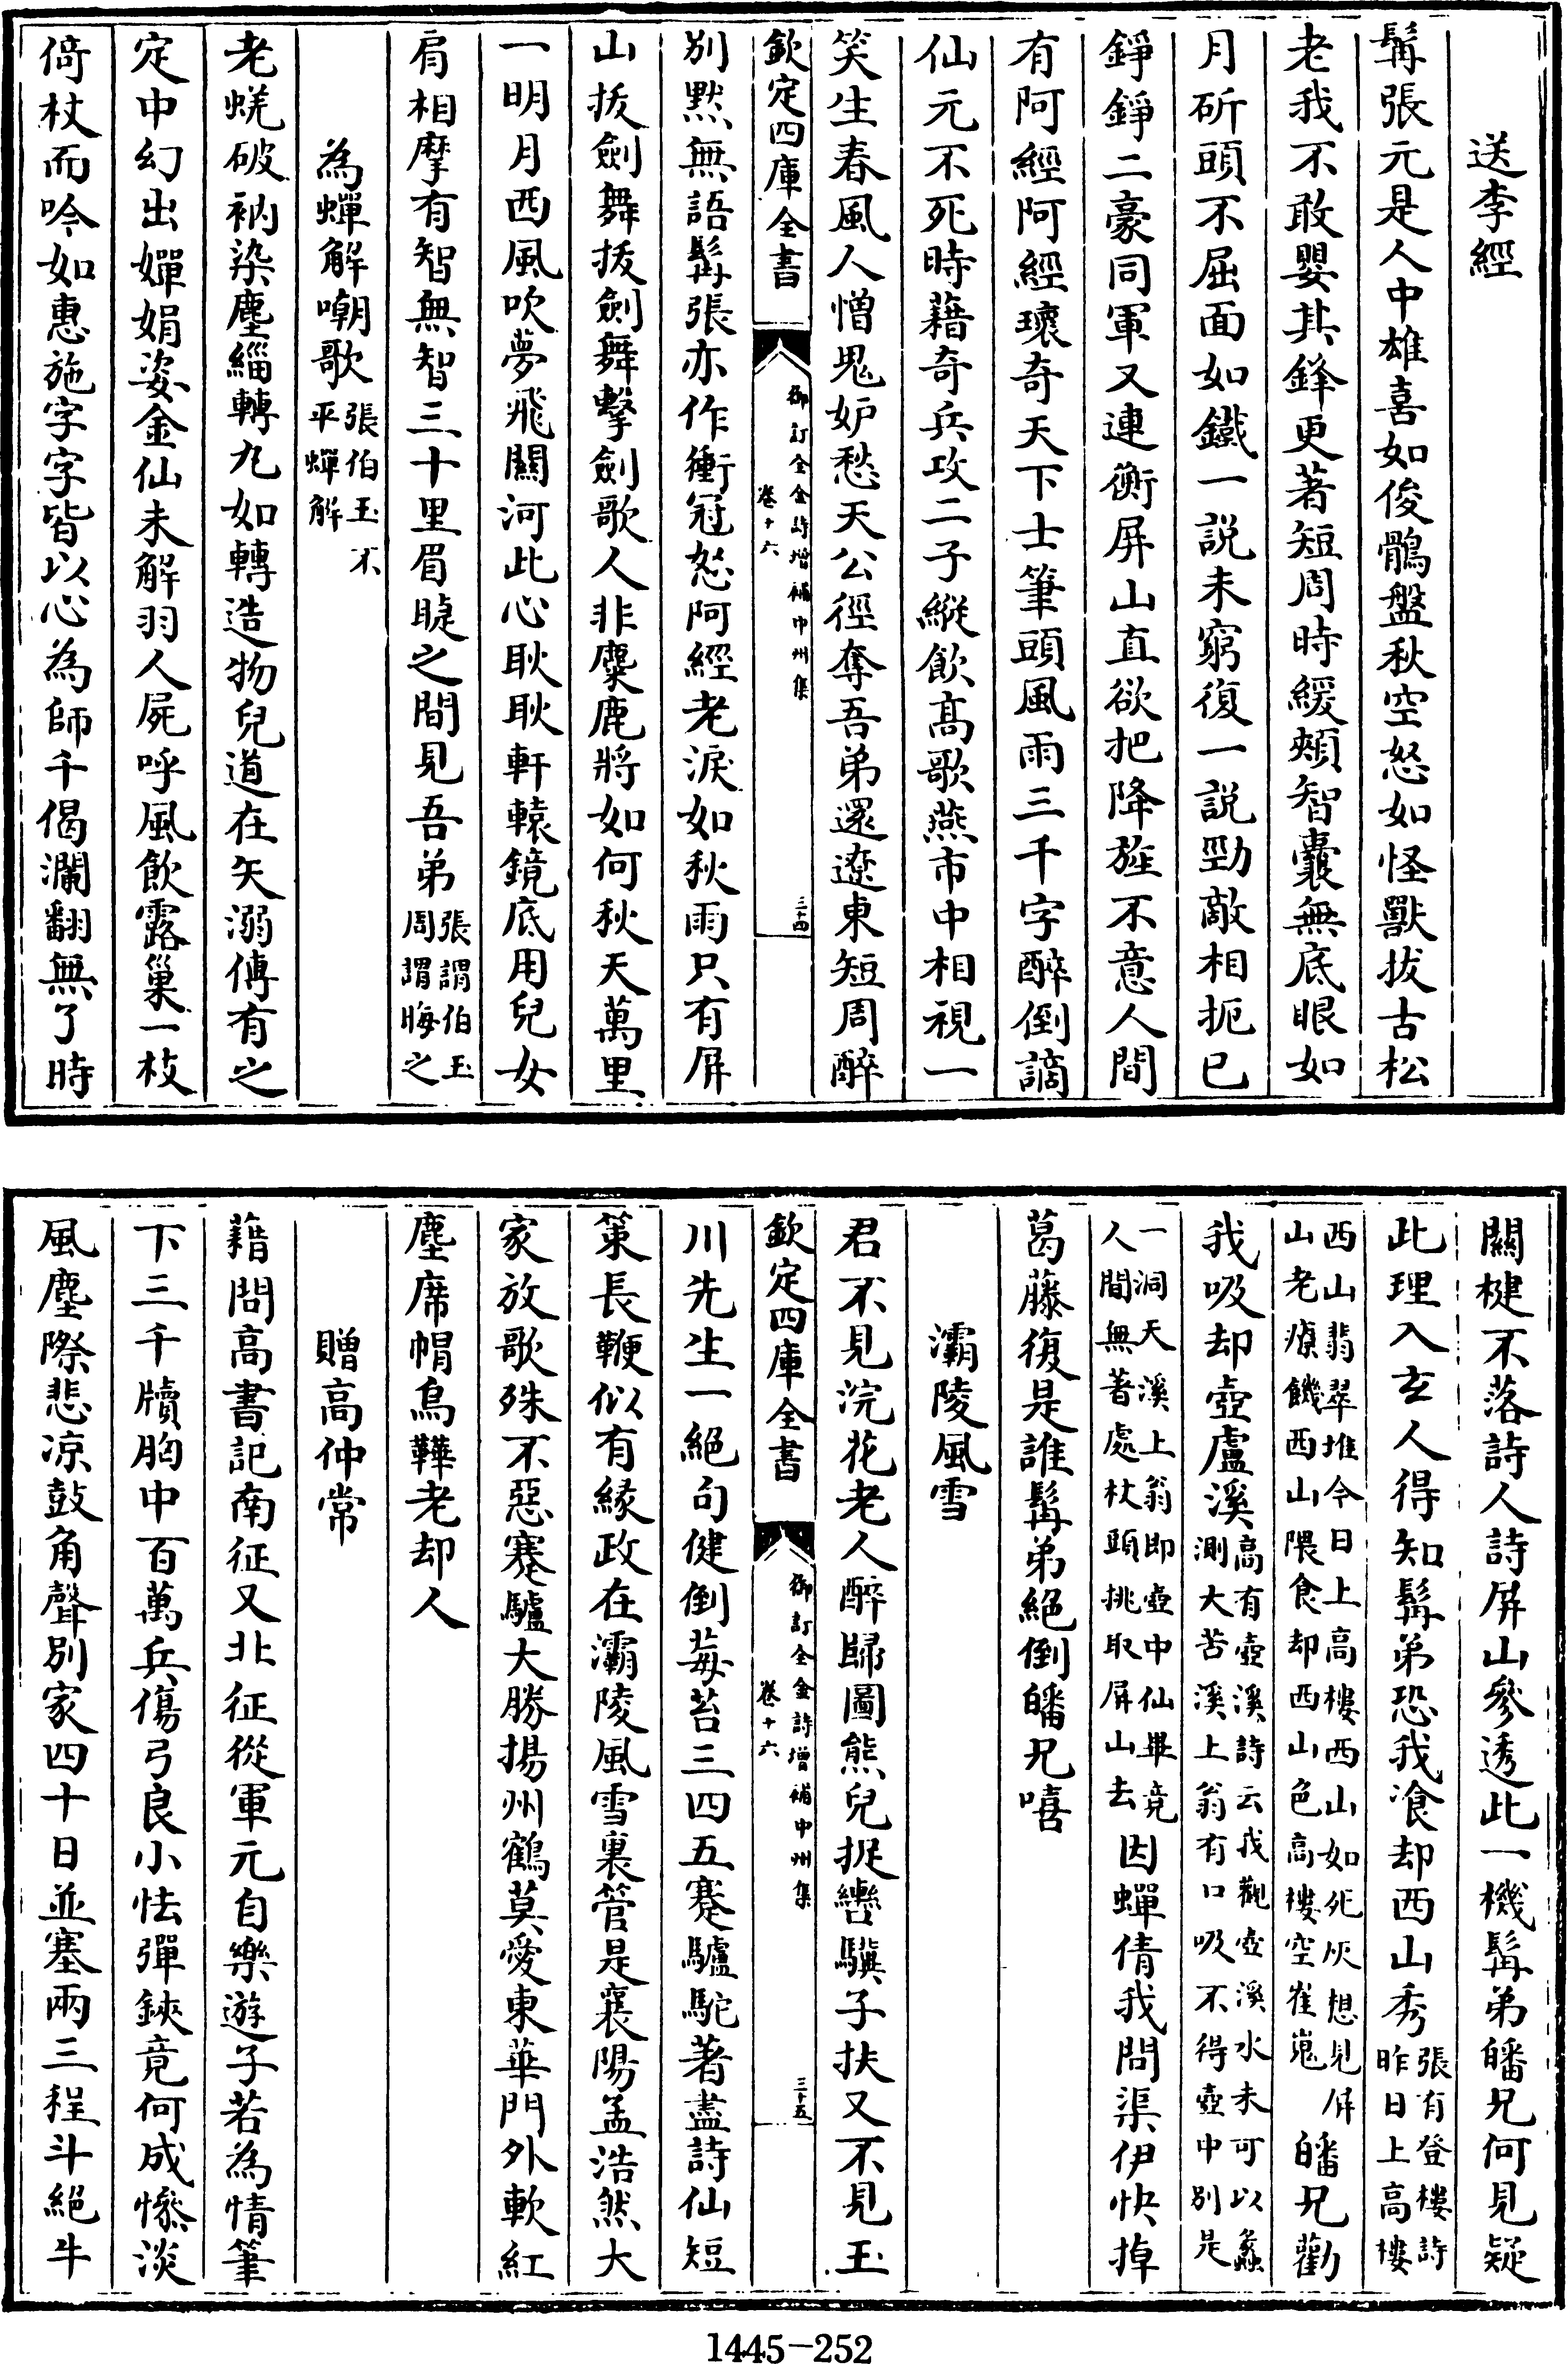 送李經
髯張元是人中雄喜如俊鶻盤秋空怒如怪獸拔古松
老我不敢嬰其鋒更著短周時緩頰智囊無底眼如
月斫頭不屈面如鐵一説未窮復一説勁敵相扼已
錚錚二豪同軍又連衡屏山直欲把降旌不意人間
有阿經阿經瓌奇天下士筆頭風雨三千字醉倒謫
仙元不死時藉奇兵攻二子縱飲髙歌燕市中相視一
笑生春風人憎鬼妒愁天公徑奪吾弟還遼東短周醉
欽定四庫全書
御訂全金詩增補中州集
卷十六
三十四
別黙無語髯張亦作衝冠怒阿經老淚如秋雨只有屏
山拔劍舞拔劍舞擊劍歌人非麋鹿將如何秋天萬里
一明月西風吹夢飛關河此心耿耿軒轅鏡底用兒女
肩相摩有智無智三十里眉睫之間見吾弟張謂伯玉
周謂晦之
為蟬解嘲歌張伯玉不
平蟬解
老蜣破衲染塵緇轉丸如轉造物兒道在矢溺傅有之
定中幻出嬋娟姿金仙未解羽人屍呼風飲露巢一枝
倚杖而吟如惠施字字皆以心為師千偈瀾翻無了時
關楗不落詩人詩屏山參透此一機髯弟皤兄何見疑
此理入玄人得知髯弟恐我飡却西山秀張有登樓詩
昨日上高樓
西山翡翠堆今日上高樓西山如死灰想見屏
山老療饑西山隈食却西山色高樓空崔嵬皤兄勸
我吸却壺盧溪高有壺溪詩云我觀壺溪水未可以蠡
測大苦溪上翁有口吸不得壺中別是
一洞天溪上翁即壺中仙畢竟
人間無著處杖頭挑取屏山去因蟬倩我問渠伊快掉
葛藤復是誰髯弟絕倒皤兄嘻
灞陵風雪
君不見浣花老人醉歸圖熊兒捉轡驥子扶又不見玉
欽定四庫全書
御訂全金詩增補中州集
卷十六
三十五
川先生一絕句健倒莓苔三四五蹇驢駝著盡詩仙短
策長鞭似有緣政在灞陵風雪裏管是襄陽孟浩然大
家放歌殊不惡蹇驢大勝揚州鶴莫愛東華門外軟紅
塵席帽烏鞾老却人
贈高仲常
藉問高書記南征又北征從軍元自樂遊子若為情筆
下三千牘胸中百萬兵傷弓良小怯彈鋏竟何成慘淡
風塵際悲凉鼓角聲別家四十日並塞兩三程斗絕牛
1445-252